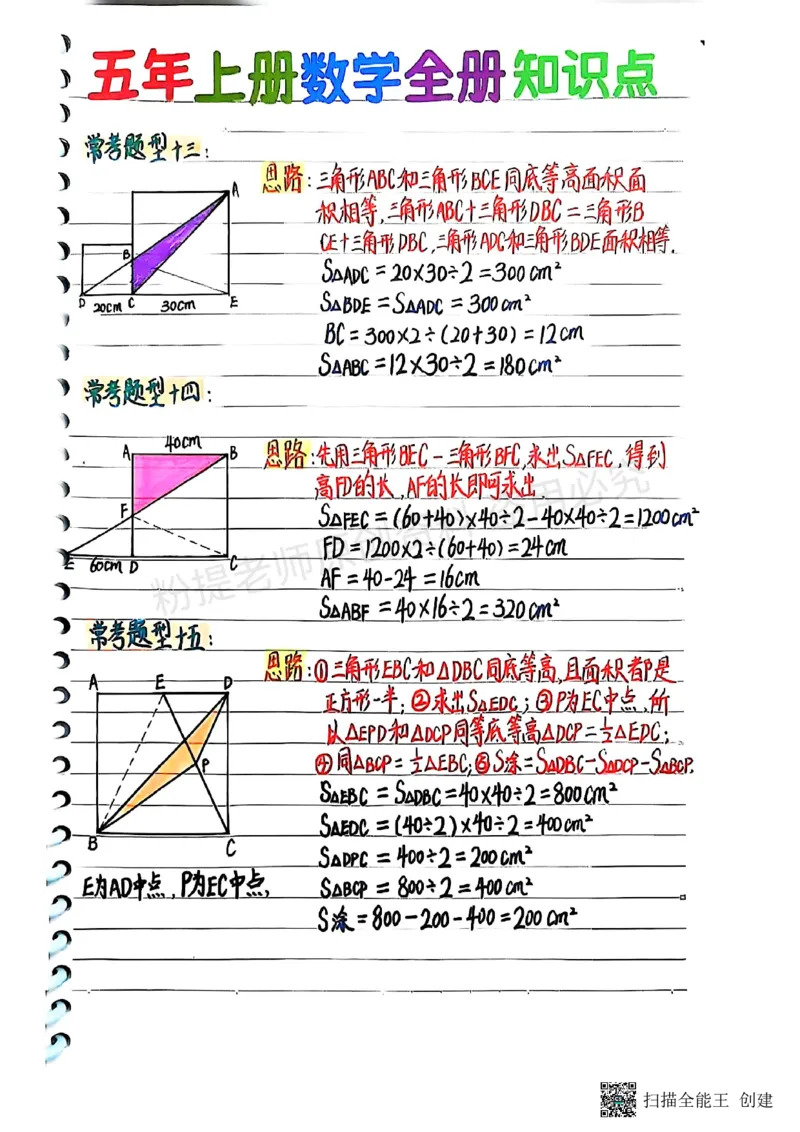 五年上册数学全册知识点
常考题型十三:
思路:三角形ABC和三角形BCE同底等高面积面
积相等,三角形ABC+三角形DBC=三角形B
CE+三角形DBC,三角形ADC和三角形BDE面积相等.
S△ADC=20×30÷2=300cm²
S△BDE=S△ADC=300cm²
BC=300×2÷(20+30)=12cm
S△ABC=12×30÷2=180cm²
A
B
D 20cm C 30cm E
常考题型十四:
思路:先用三角形BEC-三角形BFC,求出S△FEC,得到
高FD的长,AF的长即可求出.
S△FEC=(60+40)×40÷2-40×40÷2=1200cm²
FD=1200×2÷(60+40)=24cm
AF=40-24=16cm
S△ABF=40×16÷2=320cm²
40cm
A B
F
E 60cm D C
粉提老师原创资料 盗用必究
常考题型十五:
思路:①三角形EBC和△DBC同底等高,且面积都是
正方形一半;②求出S△EDC;③P为EC中点,所
以△EPD和△DCP同等底等高△DCP=½△EDC;
④同△BCP=½△EBC;⑤S涂=S△DBC-S△DCP-S△BCP.
S△EBC=S△DBC=40×40÷2=800cm²
S△EDC=(40÷2)×40÷2=400cm²
S△DPC=400÷2=200cm²
S△BCP=800÷2=400cm²
S涂=800-200-400=200cm²
A E D
P
B C
E为AD中点,P为EC中点,
扫描全能王 创建